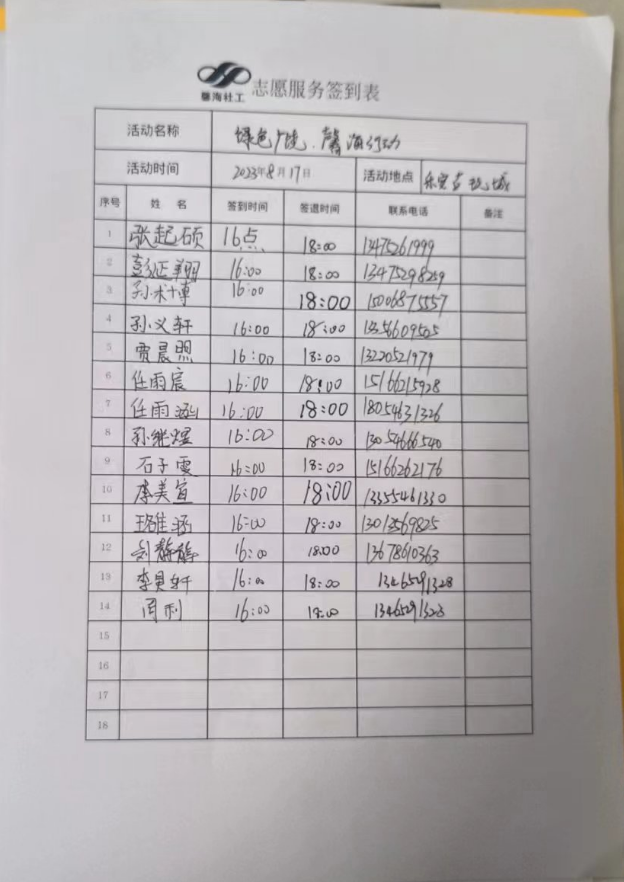 馨海社工 志愿服务签到表
活动名称 绿色广饶.馨海行动
活动时间 2023年8月17日 活动地点 乐安古玩城
序号 姓 名 签到时间 签退时间 联系电话 备注
1 张起硕 16点 18:00 13475261999
2 彭延翔 16:00 18:00 13475298259
3 孙术博 16:00 18:00 15006875557
4 孙义轩 16:00 18:00 13356609505
5 贾晨熙 16:00 18:00 13220521979
6 任雨宸 16:00 18:00 15166215928
7 任雨涵 16:00 18:00 18054631326
8 孙继煜 16:00 18:00 13054666540
9 石子雯 16:00 18:00 15166262176
10 李美萱 16:00 18:00 13355461330
11 16:00 18:00 13013569825
12 刘静静 16:00 18:00 13678610363
13 李昊轩 16:00 18:00 13465291328
14 周利 16:00 18:00
15
16
17
18